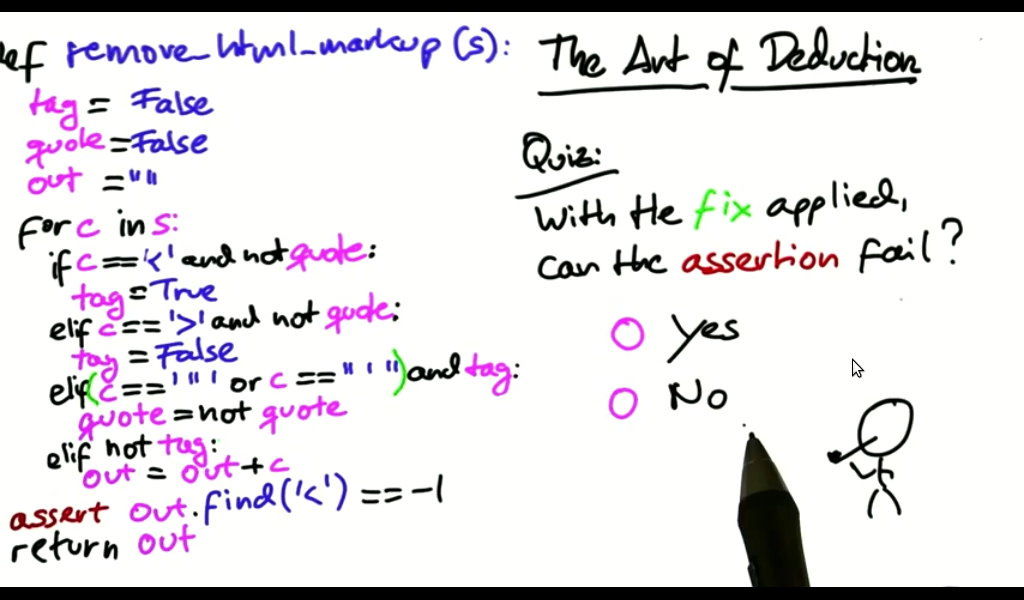 def remove_html_markup (s):
tag = False
quote = False
out = ""
for c in s:
if c == '<' and not quote:
tag = True
elif c == '>' and not quote:
tag = False
elif (c == '"' or c == "'") and tag:
quote = not quote
elif not tag:
out = out + c
assert out.find('<') == -1
return out
The Art of Deduction
Quiz:
With the fix applied,
can the assertion fail?
Yes
No